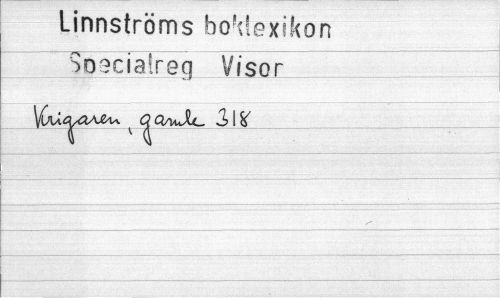 Linnströms boklexikon
Specialreg Visor
Krigaren, gamle 318